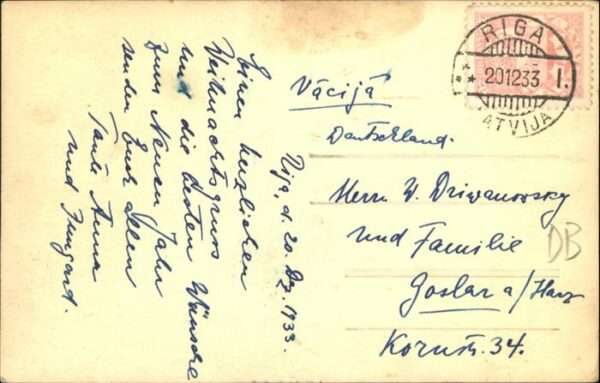 Riga, d. 20. Dez. 1933.
Einen herzlichen
Weihnachtsgruss
und die besten Wünsche
zum Neuen Jahr
senden Euch allen
Tante Anna
und Irmgard.
RIGA
20 12 33
I.
LATVIJA
Vācijā
Deutschland.
Herrn W. Driwanowsky
und Familie
Goslar a/Harz
Kornstr. 34.
DB